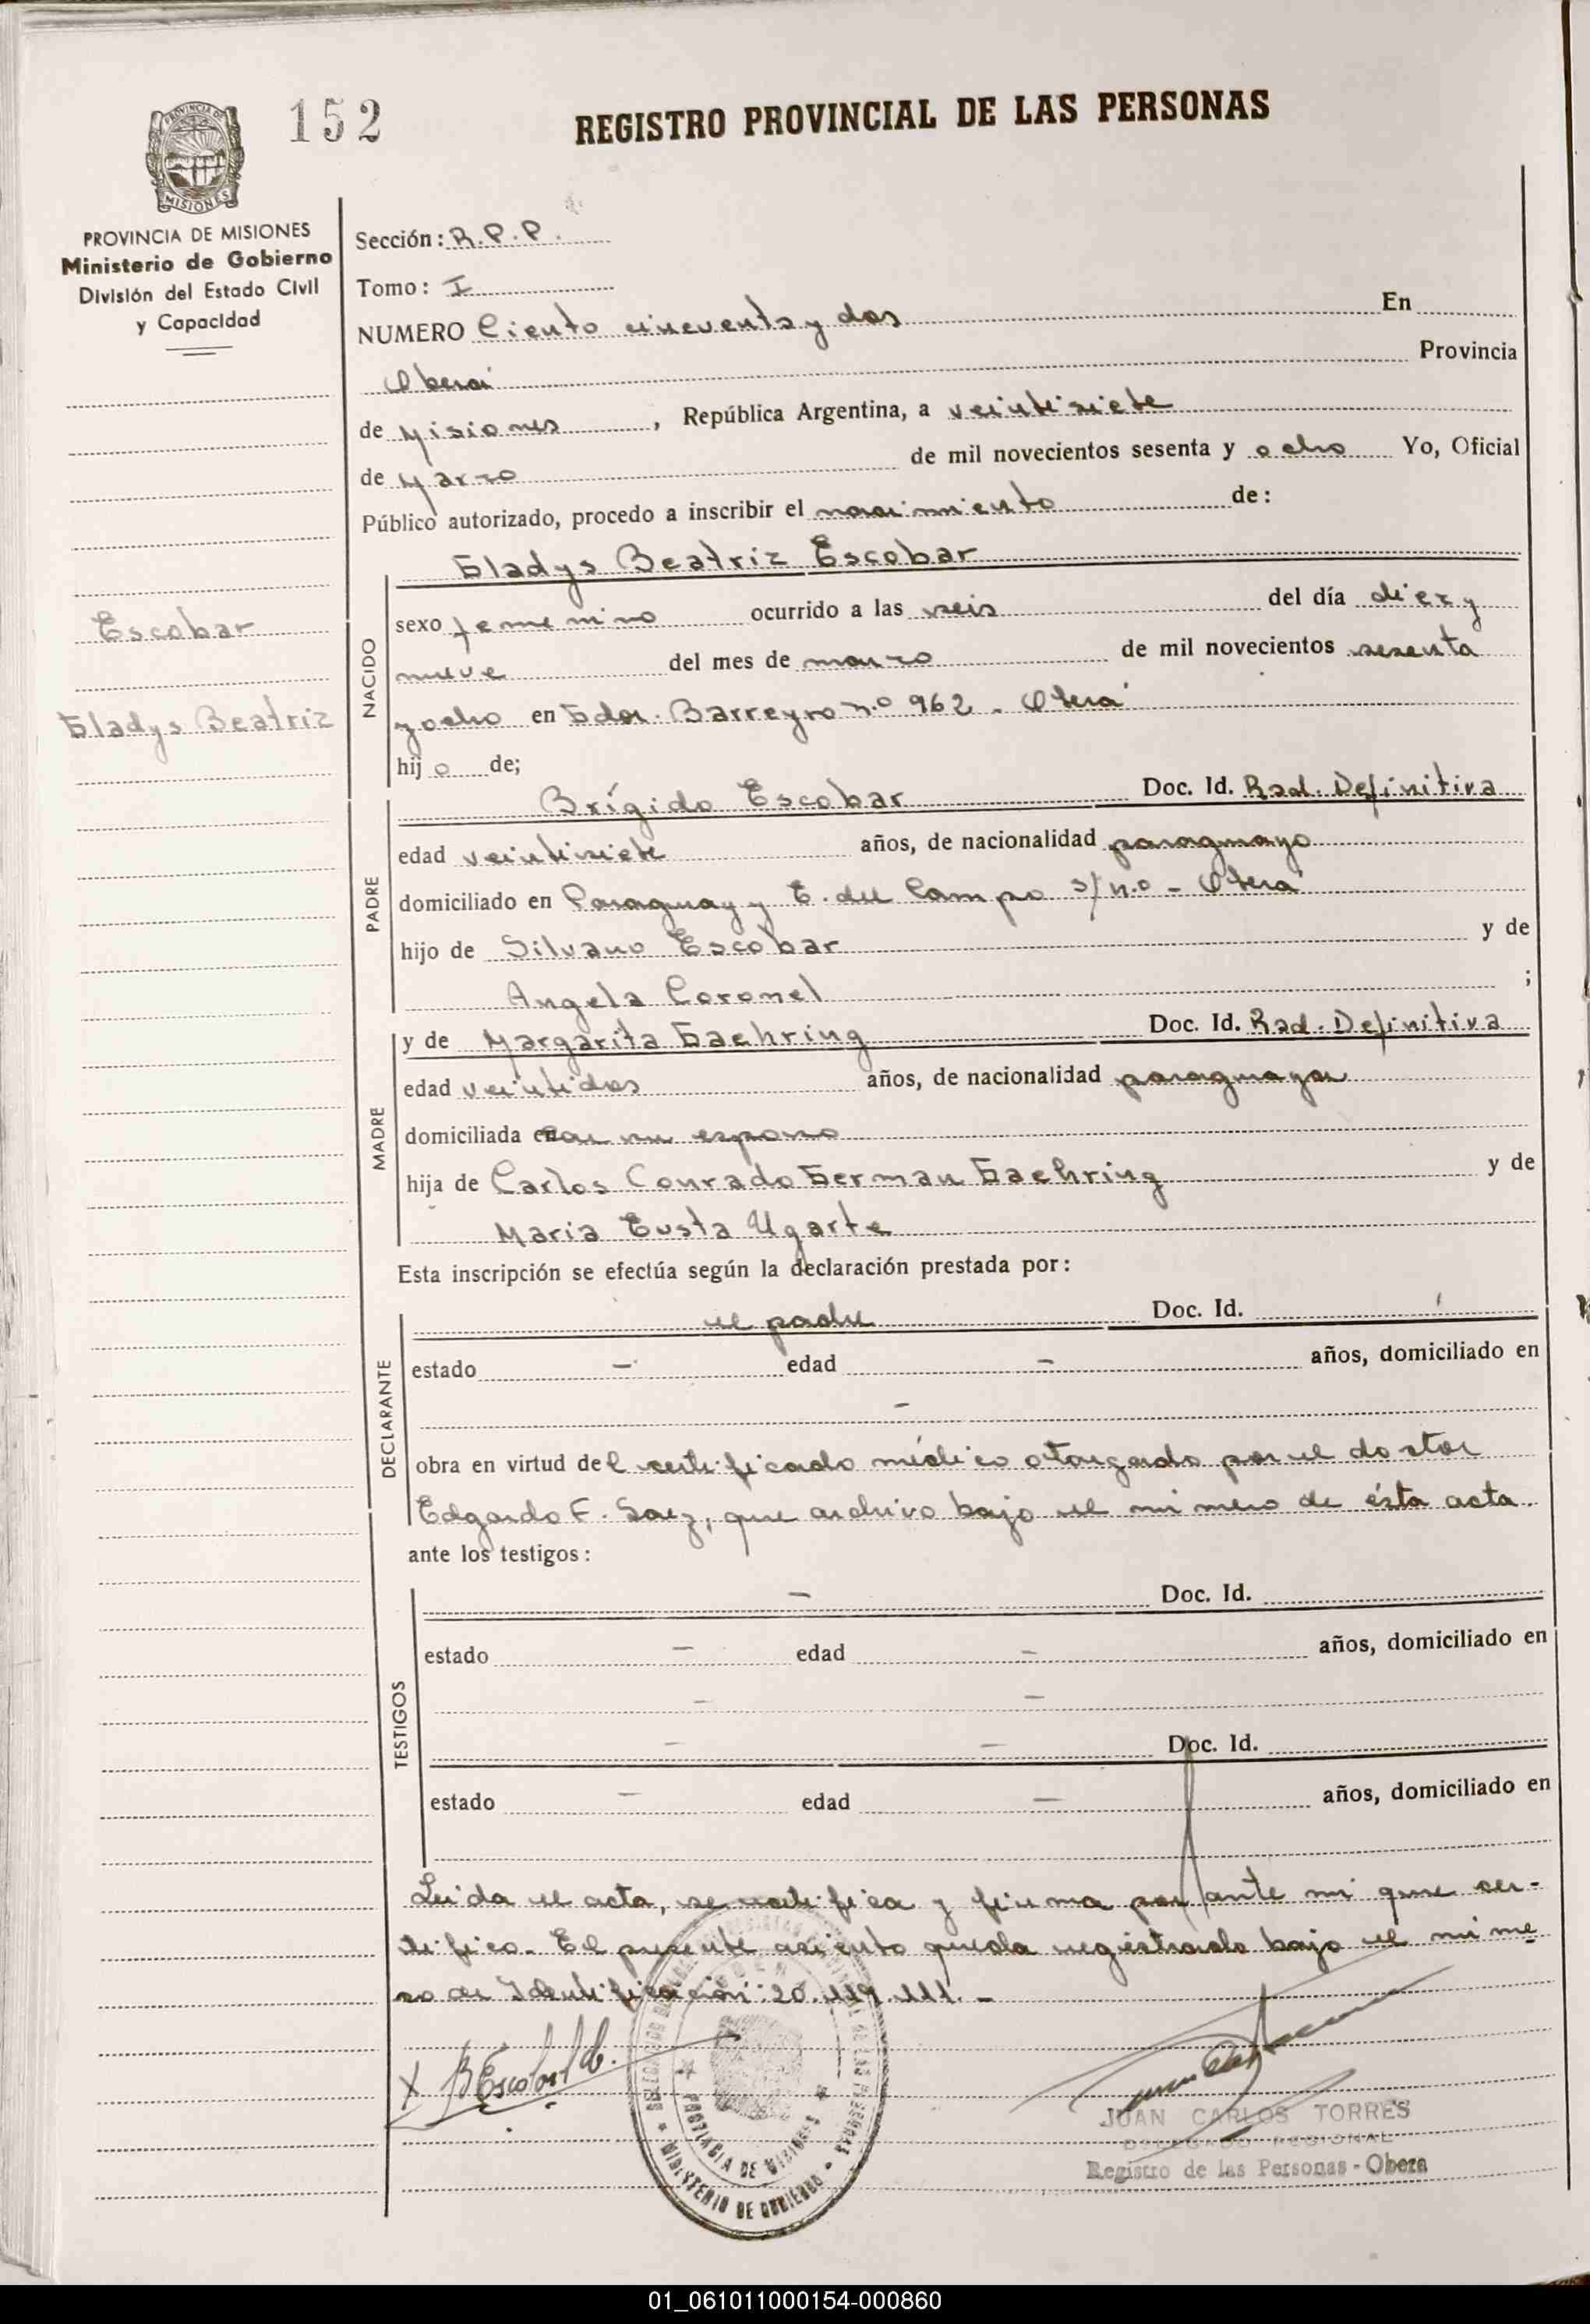 152
REGISTRO PROVINCIAL DE LAS PERSONAS
PROVINCIA DE
MISIONES
PROVINCIA DE MISIONES
Ministerio de Gobierno
División del Estado Civil
y Capacidad
Escobar
Gladys Beatriz
Sección: R.P.P.
Tomo: I
NUMERO Ciento cincuenta y dos En
Oberá Provincia
de Misiones, República Argentina, a veintisiete
de Marzo de mil novecientos sesenta y ocho Yo, Oficial
Público autorizado, procedo a inscribir el nacimiento de:
Gladys Beatriz Escobar
NACIDO
sexo femenino ocurrido a las seis del día diez y
nueve del mes de marzo de mil novecientos sesenta
y ocho en Gdor. Barreyro nº 962 - Oberá
hij a de;
PADRE
Brígido Escobar Doc. Id. Rad. Definitiva
edad veintisiete años, de nacionalidad paraguayo
domiciliado en Paraguay y E. del Campo s/n.º - Oberá
hijo de Silvano Escobar y de
Angela Coronel ;
MADRE
y de Margarita Gaehring Doc. Id. Rad. Definitiva
edad veintidos años, de nacionalidad paraguaya
domiciliada en su esposo
hija de Carlos Conrado German Gaehring y de
Maria Eusta Ugarte
Esta inscripción se efectúa según la declaración prestada por:
DECLARANTE
el padre Doc. Id.
estado - edad - años, domiciliado en
-
obra en virtud del certificado médico otorgado por el doctor
Edgardo F. Saez, que archivo bajo el número de ésta acta
ante los testigos:
TESTIGOS
- Doc. Id.
estado - edad - años, domiciliado en
- -
- - Doc. Id.
estado - edad - años, domiciliado en
Leida el acta, se ratifica y firma por ante mí que cer-
tifico. El presente asiento queda registrado bajo el núme
ro de Identificación: 20.119.111. -
X B Escobar
PROVINCIA DE MISIONES
MINISTERIO DE GOBIERNO
JUAN CARLOS TORRES
DELEGADO REGIONAL
Registro de las Personas - Obera
01_061011000154-000860